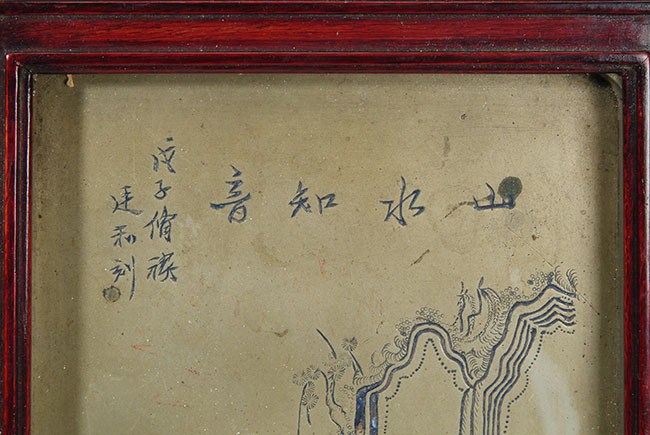 山水知音
戊子脩禊
廷和刻